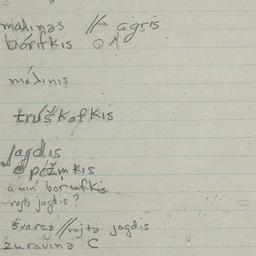 malinas // agris
bórfkis
málinis
trúškafkis
jagdis
pózmkis
a min' borufkis
rojtə jagdis?
švarcə // rojtə jagdis
žuravinə C